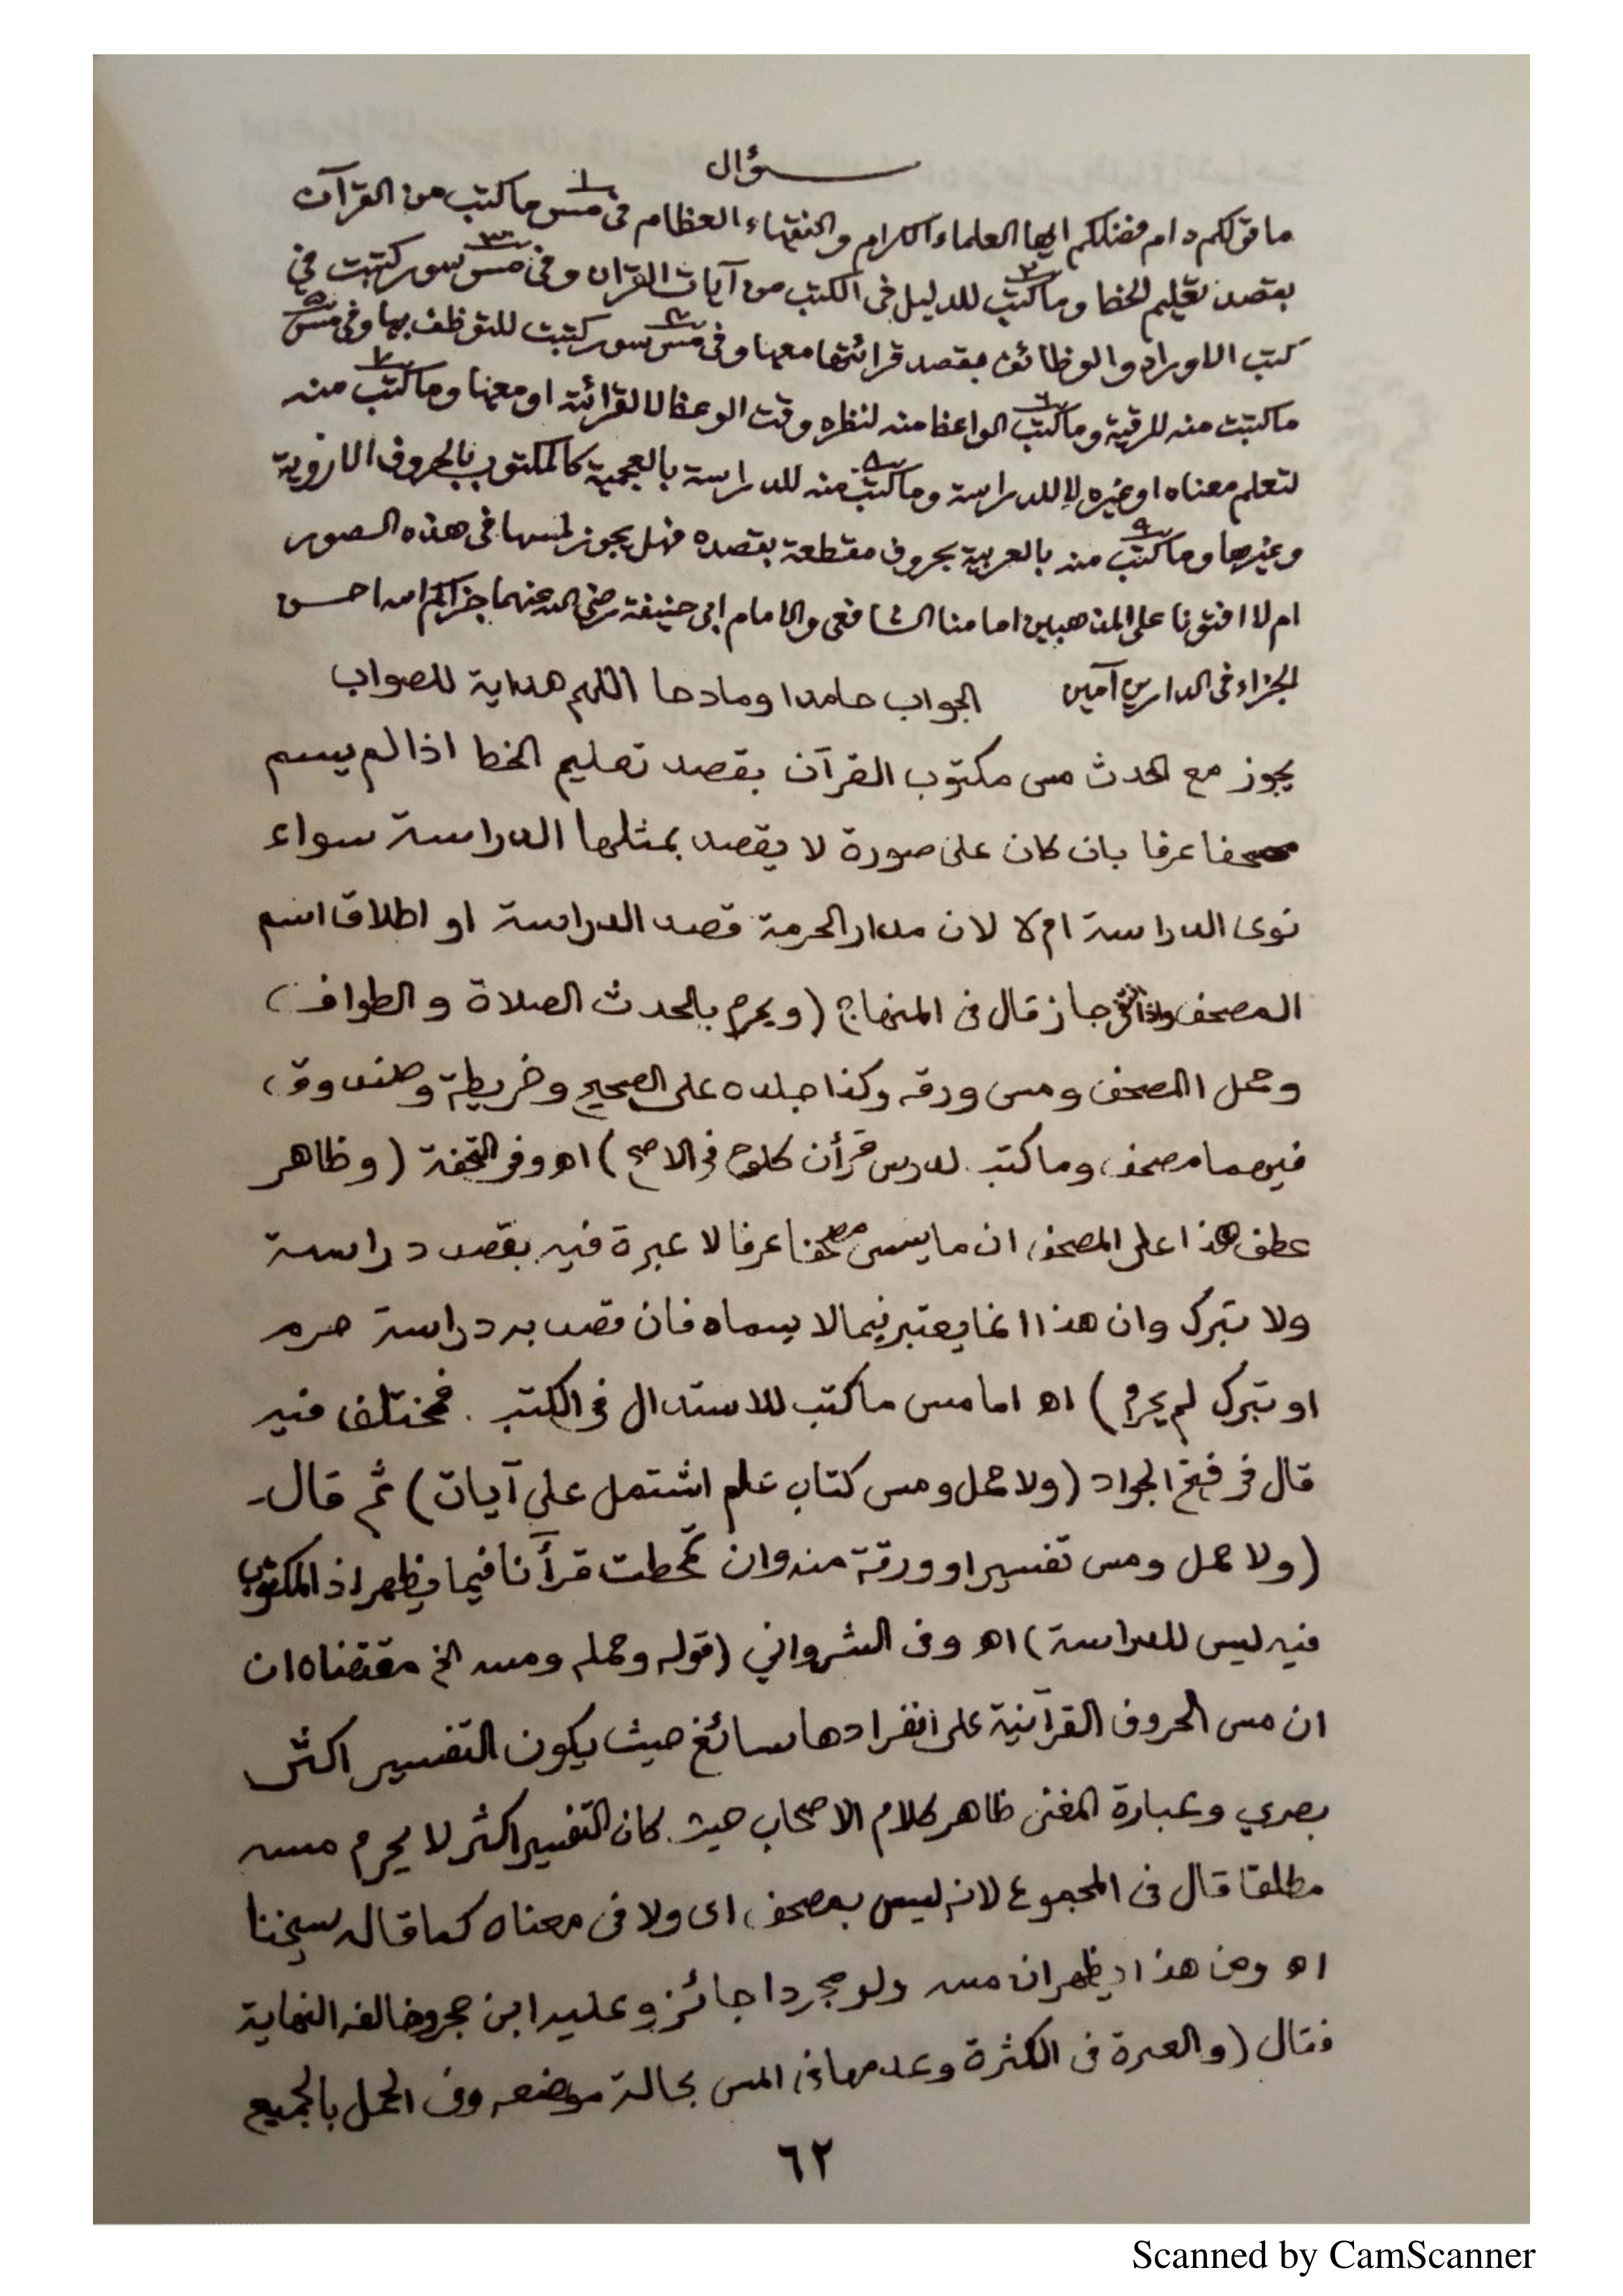 سؤال
ما قولكم دام فضلكم ايها العلماء الكرام والفقهاء العظام فى مس ما كتب من القرآن
١
بقصد تعليم الخط وما كتب للدليل فى الكتب من آيات القران وفى مس سور كتبت فى
٢ ٣
كتب الاوراد والوظائف بقصد قرائتها معها وفى مس سور كتبت للتوظف بها وفى مس
٤ ٥
ما كتبت منه للرقية وما كتب الواعظ منه لنظره وقت الوعظ لا لقرائة او معها وما كتب منه
٦ ٧
لتعلم معناه او غيره لا للدراسة وما كتب منه للدراسة بالعجمية كالمكتوب بالحروف الاروية
٨
وغيرها وما كتب منه بالعربية بحروف مقطعة بقصده فهل يجوز لمسها فى هذه الصور
٩
ام لا افتونا على المذهبين امامنا الشافعى والامام ابى حنيفة رضى الله عنهما جزاكم الله احسن
الجزاء فى الدارين آمين الجواب حامدا ومادحا اللهم هداية للصواب
يجوز مع الحدث مس مكتوب القرآن بقصد تعليم الخط اذا لم يسم
مصحفا عرفا بان كان على صورة لا يقصد بمثلها الدراسة سواء
نوى الدراسة ام لا لان مدار الحرمة قصد الدراسة او اطلاق اسم
المصحف واذا انتفى جاز قال فى المنهاج (ويحرم بالحدث الصلاة و الطواف)
وحمل المصحف ومس ورقه وكذا جلده على الصحيح وخريطة وصندوق
فيهما مصحف وما كتب لدرس قرأن كلوح فى الاصح) اه وفى التحفة (وظاهر
عطف هذا على المصحف ان ما يسمى مصحفا عرفا لا عبرة فيه بقصد دراسة
ولا تبرك وان هذا انما يعتبر فيما لا يسماه فان قصد به دراسة حرم
او تبرك لم يحرم) اه اما مس ما كتب للاستدال فى الكتب . فمختلف فيه
قال فى فتح الجواد (ولا حمل ومس كتاب علم اشتمل على آيات) ثم قال
(ولا حمل ومس تفسير او ورقة منه وان تمحطت قرأنا فيما يظهر اذ المكتوب
فيه ليس للدراسة) اه وفى الشرواني (قوله وحمله ومسه الخ مقتضاه ان
ان مس الحروف القرآنية على انفرادها سائغ حيث يكون التفسير اكثر
بصري وعبارة المغنى ظاهر كلام الاصحاب حيث كان التفسير اكثر لا يحرم مسه
مطلقا قال فى المجموع لانه ليس بمصحف اى ولا فى معناه كما قاله شيخنا
اه ومن هذا يظهر ان مسه ولو مجردا جائز وعليه ابن حجر وخالفه النهاية
فقال (والعبرة فى الكثرة وعدمها فى المس بحالة موضعه وفى الحمل بالجميع
٦٢
Scanned by CamScanner